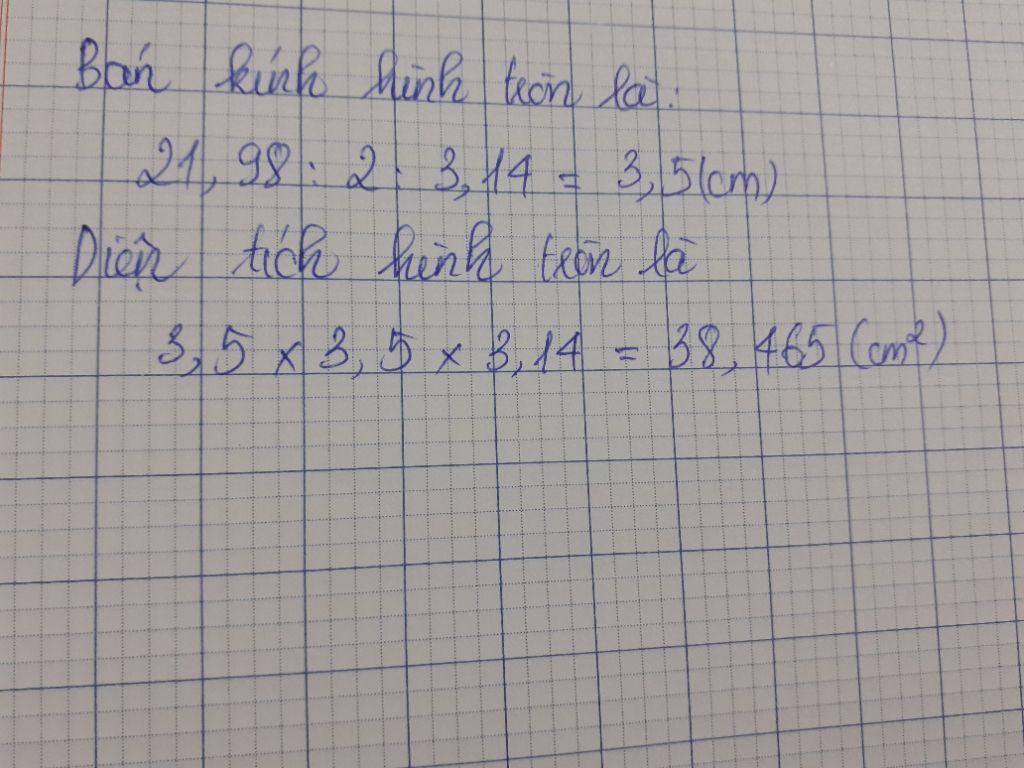 Bán kính hình tròn là:
21,98 : 2 : 3,14 = 3,5(cm)
Diện tích hình tròn là
3,5 x 3,5 x 3,14 = 38,465 (cm²)